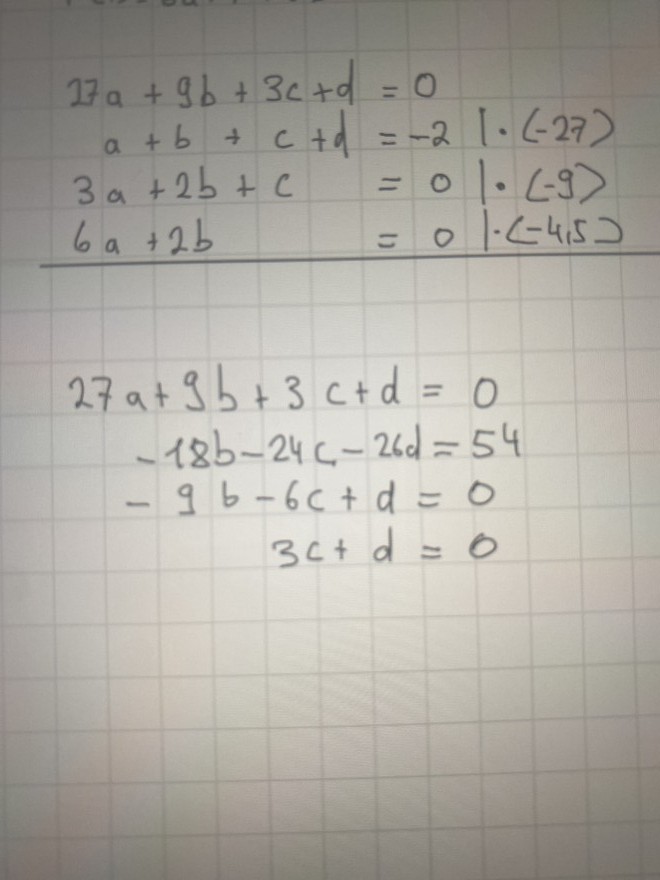 27a + 9b + 3c + d = 0
a + b + c + d = -2 | · (-27)
3a + 2b + c = 0 | · (-9)
6a + 2b = 0 | · (-4,5)
27a + 9b + 3c + d = 0
-18b - 24c - 26d = 54
- 9b - 6c + d = 0
3c + d = 0